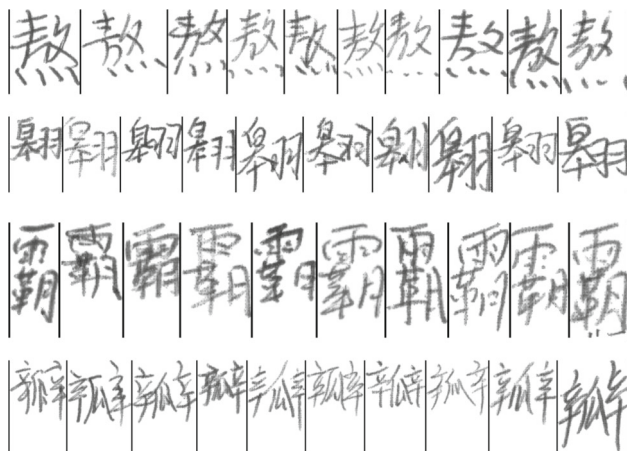 熬熬熬熬熬熬熬熬熬熬
翱翱翱翱翱翱翱翱翱翱
霸霸霸霸霸霸霸霸霸霸
瓣瓣瓣瓣瓣瓣瓣瓣瓣瓣